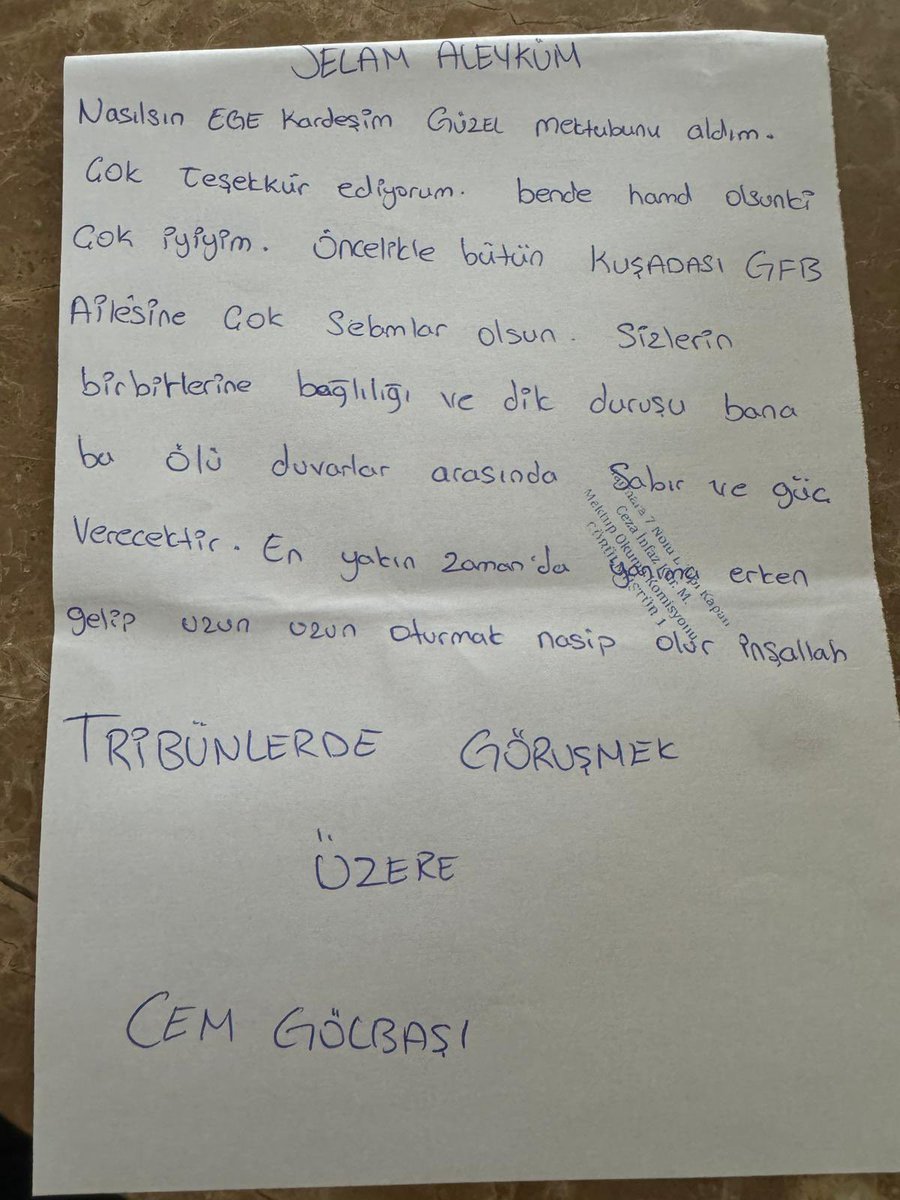 SELAM ALEYKÜM
Nasılsın EGE Kardeşim GÜZEL mektubunu aldım.
Çok teşekkür ediyorum. bende hamd olsunki
Çok iyiyim. Öncelikle bütün KUŞADASI GFB
Ailesine Çok Selamlar olsun. Sizlerin
birbirlerine bağlılığı ve dik duruşu bana
bu ölü duvarlar arasında Sabır ve güç
Verecektir. En yakın zaman'da yanınıa erken
gelip uzun uzun oturmak nasip olur inşallah
7 Nolu L Tipi Kapalı
Ceza İnfaz Kur. M.
Mektup Okuma Komisyonu
GÖRÜLMÜŞTÜR 1
TRİBÜNLERDE GÖRUŞMEK
ÜZERE
CEM GÖLBAŞI